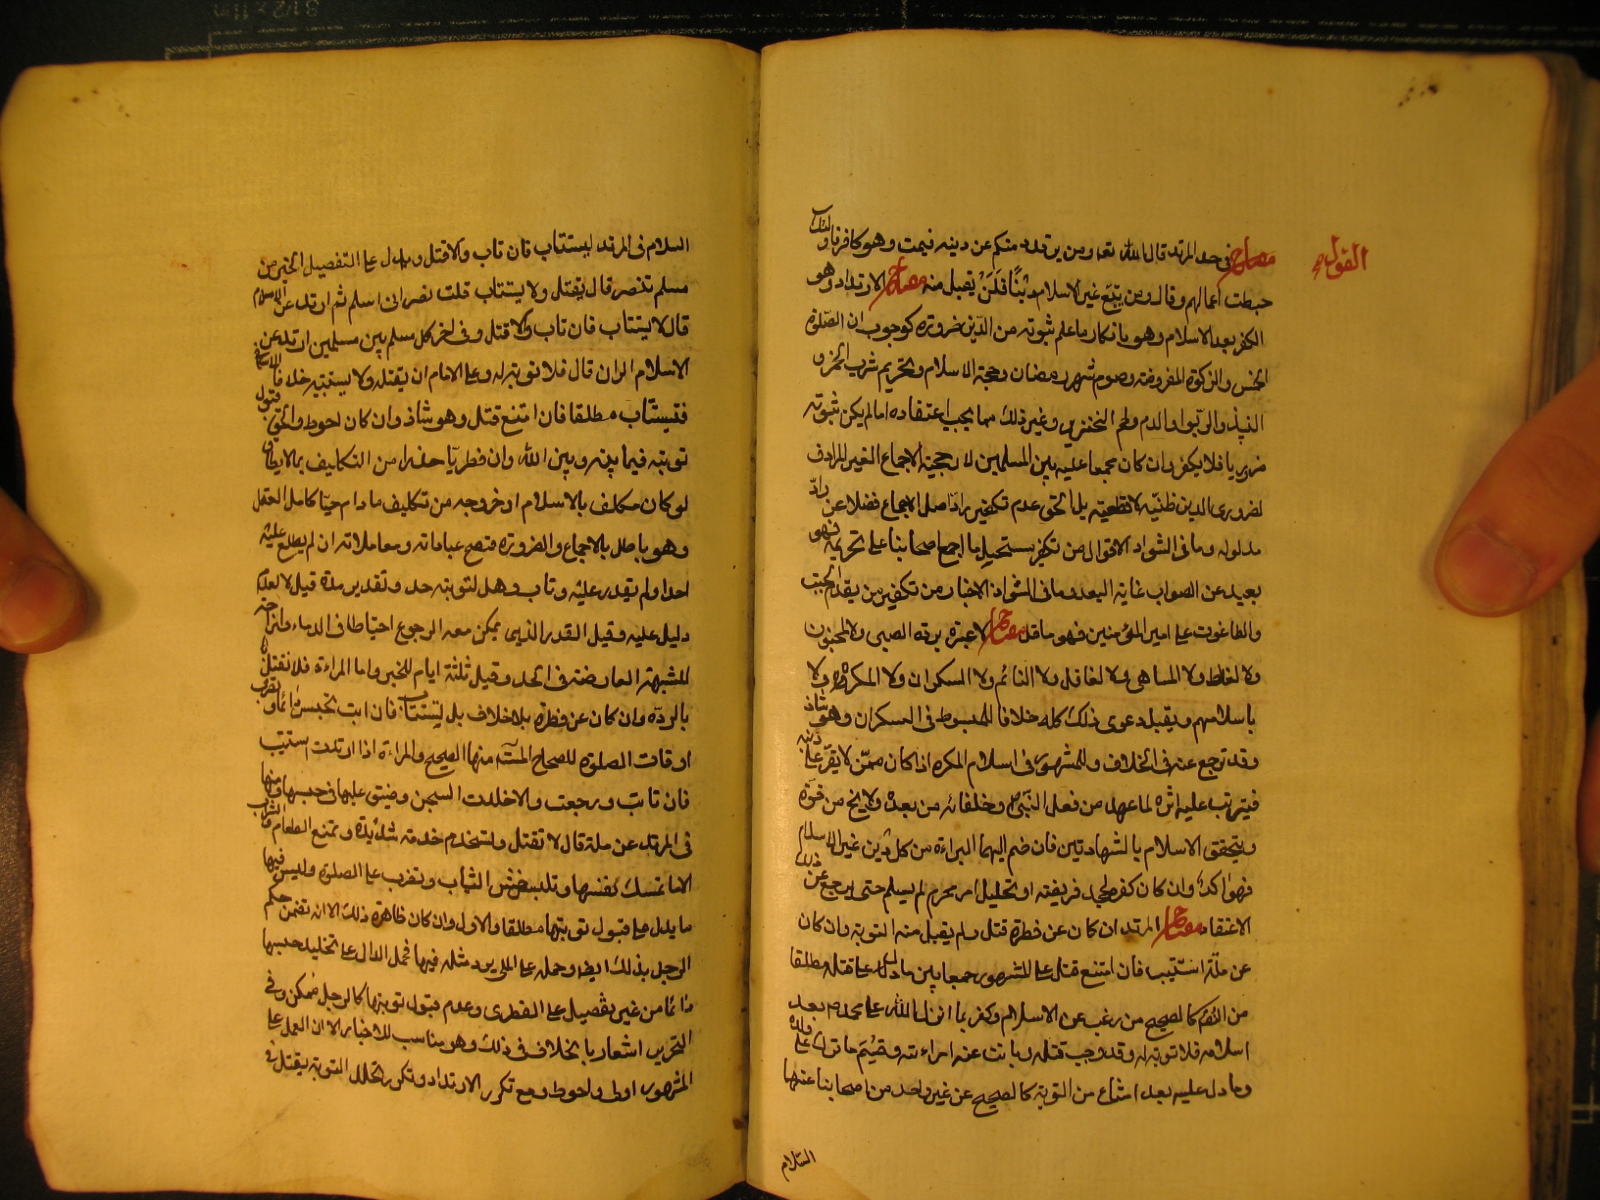 القول
مصباح في حد المرتد قال الله تعا ومن يرتدد منكم عن دينه فيمت وهو كافر فاولئك
حبطت اعمالهم وقال ومن يبتغ غير الاسلام دينًا فَلَنْ يقبل منه مصباح الارتداد وهو
الكفر بعد الاسلام وهو بانكار ما علم ثبوته من الدين ضرورة كوجوب ان الصلوة
الخمس والزكوة المفروضة وصوم شهر رمضان وحجة الاسلام وتحريم شرب الخمر و
النبيذ والربوا والدم ولحم الخنزير وغير ذلك مما يجب اعتقاده اما لم يكن ثبوته
ضروريا فلا يكفر وان كان مجمعا عليه بين المسلمين لان حجية الاجماع الغير المرادف
لضروري الدين ظنيّة لا قطعية بل الحق عدم تكفير رادّ اصل الاجماع فضلا عن رادّ
مدلوله وما في الشواذ الاقوال من تكفير مستحيل ما اجمع اصحابنا على تحريمه فهو
بعيد عن الصواب غاية البعد وما في الشواذ الاخبار من تكفير من يقدم الجبت
والطاغوت على امير المؤمنين فهو ما قل مصباح لا عبرة بردة الصبي ولا المجنون
ولا الغالط ولا الساهي ولا الغافل ولا النائم ولا السكران ولا المكره ولا
باسلامهم ويقبل دعوى ذلك كله خلافا للمبسوط في السكران وهو شاذ
وقد رجع عنه في الخلاف والمشهور في اسلام المكره اذا كان ممّن لا يقرّ على دينه
فيترتب عليه اثره لما عهد من فعل النبي ص وخلفائه من بعده ولا يخ من قوة
ويتحقق الاسلام بالشهادتين فان ضم اليهما البراءة من كل دين غير الاسلام
فهو آكد وان كان كفره بجحد فريضته او تحليل امر محرم لم يسلم حتى يرجع عن ذلك
الاعتقاد مصباح المرتد ان كان عن فطرة قتل ولم يقبل منه التوبة وان كان
عن ملّة استتيب فان امتنع قتل على المشهور جمعا بين ما دل على قتله مطلقا
من النص كالصحيح من رغب عن الاسلام وكفر بما انزل الله على محمد ص بعد
اسلامه فلا توبة له وقد وجب قتله وبانت عنه امراءته وقسّم ما ترك على ولده
وما دل عليه بعد امتناع من التوبة كالصحيح عن غير واحد من اصحابنا عنهما
السلام
السلام في المرتد يستتاب فان تاب والا قتل ويدل على التفصيل الخبر عن
مسلم تنصر قال يقتل ولا يستتاب قلت نصراني اسلم ثم ارتد عن الاسلام
قال لا يستتاب فان تاب والا قتل وفي اخر كل مسلم بين مسلمين ارتد عن
الاسلام الى ان قال فلا توبة له وعلى الامام ان يقتله ولا يستتيبه خلافا
فيستتاب مطلقا فان امتنع قتل وهو شاذ وان كان احوط والحق قبول
توبته فيما بينه وبين الله وان فطريّا حذرا من التكليف بما لا يطاق
لو كان مكلف بالاسلام او خروجه من تكليف ما دام حيا كامل العقل
وهو باطل بالاجماع والضرورة فتصح عباداته ومعاملاته ان لم يطلع عليه
احد او لم يقدر عليه وتاب وهل لتوبته حد وتقدير مدة قيل لا لعدم
دليل عليه وقيل القدر الذي يمكن معه الرجوع احتياطا في الدماء وازاحة
للشبهة العارضة في الحد وقيل ثلثة ايام للخبر واما المراءة فلا تقتل
بالردة وان كان عن فطرة بلا خلاف بل تستتاب فان ابت تحبس دائما وتضرب
اوقات الصلوة للصحاح المستة منها الصحيح والمراءة اذا ارتدت تستتيب
فان تابت ورجعت والا خلدت السجن وضيق عليها في حبسها ومنها
في المرتد عن ملة قال لا تقتل وتستخدم خدمة شديدة وتمنع الطعام والشراب
الا ما تمسك نفسها وتلبس خشن الثياب وتضرب على الصلوة وليس فيها
ما يدل على قبول توبتها مطلقا والاول وان كان ظاهره ذلك الا انه تضمن حكم
الرجل بذلك ايضا وحمله على الملي يرد مثله فيها فحمل الدال على تخليد حبسها
دائما من غير تفصيل على الفطري وعدم قبول توبتها كالرجل ممكن وفي
التحرير اشعار بالخلاف في ذلك وهو مناسب للاخبار الا ان العمل على
المشهور اولى واحوط ومع تكرر الارتداد وتكرر تخلل التوبة يقتل في